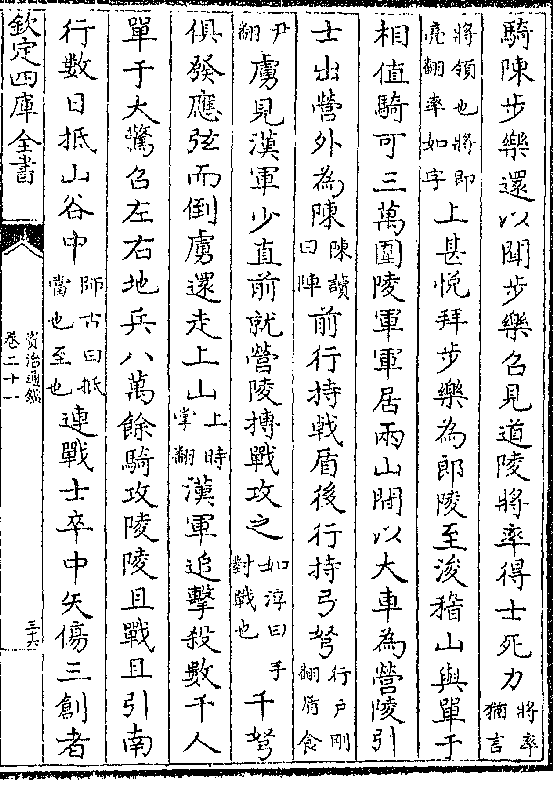 騎陳步樂還以聞步樂召見道陵將率得士死力將率猶言
將領也將即亮翻率如字上甚恱拜步樂為郎陵至浚稽山與單于
相值騎可三萬圍陵軍軍居兩山間以大車為營陵引
士出營外為陳陳讀曰陣前行持戟盾後行持弓弩行戶剛翻盾食
尹翻虜見漢軍少直前就營陵搏戰攻之如淳曰手對戰也千弩
俱發應弦而倒虜還走上山上時掌翻漢軍追擊殺數千人
單于大驚召左右地兵八萬餘騎攻陵陵且戰且引南
行數日抵山谷中師古曰抵當也至也連戰士卒中矢傷三創者
欽定四庫全書
資治通鑑
卷二十一
三十六